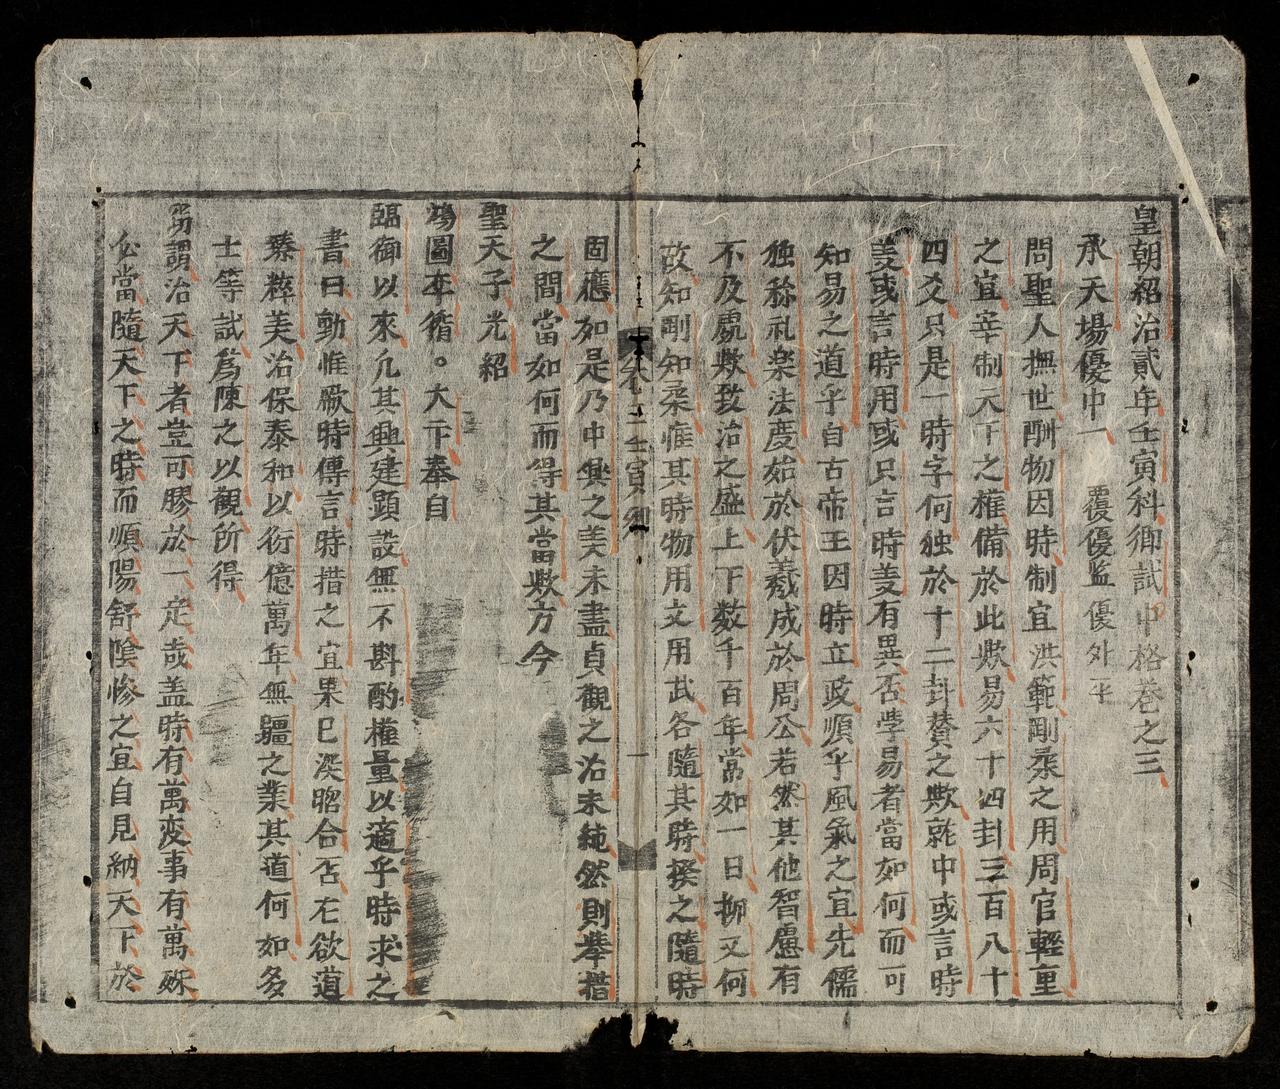 皇朝紹治貳年壬寅科鄉試中格卷之三
承天場優中一 覆優監優外平
問聖人撫世酬物因時制宜洪範剛柔之用周官輕重
之宜宰制天下之權備於此歟易六十四卦三百八十
四爻只是一時字何独於十二卦賛之歟就中或言時
義或言時用或只言時義有異否學易者當如何而可
知易之道乎自古帝王因時立政順乎風氣之宜先儒
独称礼楽法度始於伏羲成於周公若然其他智慮有
不及處歟致治之盛上下数千百年當如一日抑又何
故知剛知柔惟其時物用文用武各隨其時揆之隨時
卷之三壬寅鄉
一
固應如是乃中興之美未盡貞觀之治未純然則舉措
之間當如何而得其當歟方今
聖天子光紹
鴻圖率循。大卞奉自
臨御以來凢其興建顕設無不斟酌權量以適乎時求之
書曰動惟厥時傳言時措之宜果已深脗合否在欲道
臻粹美治保泰和以衍億萬年無疆之業其道何如多
士等試爲陳之以觀所得
甞謂治天下者豈可膠於一定哉盖時有萬変事有萬殊
㑹當隨天下之時而順陽舒陰慘之宜自見納天下於